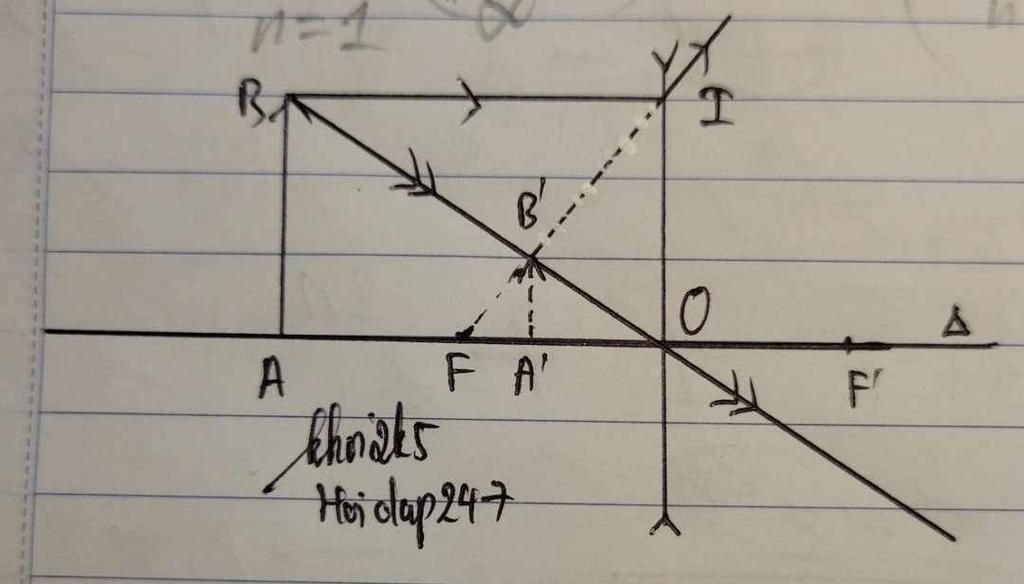 n=1
B
I
B'
O
Δ
A
F
A'
F'
khoi2k5
Hoidap247